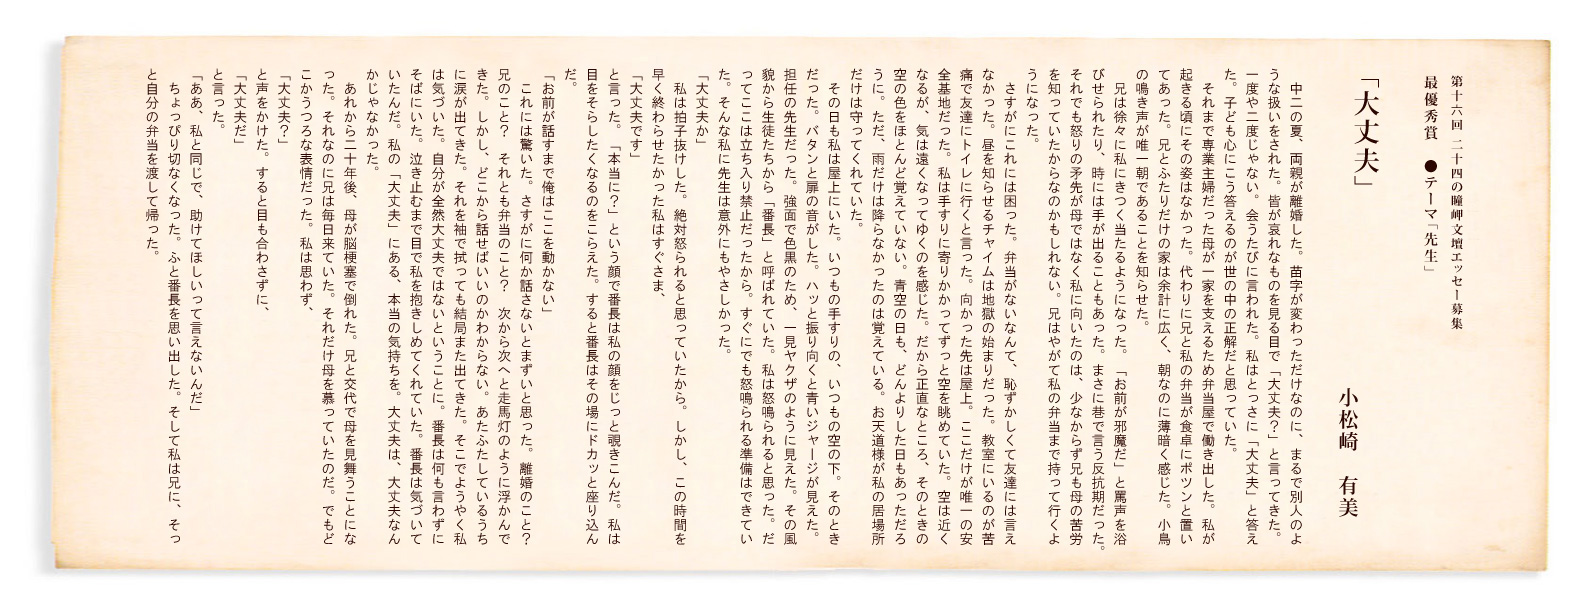 第十六回 二十四の瞳岬文壇エッセー募集
最優秀賞 ●テーマ「先生」
「大丈夫」
小松崎 有美
中二の夏、両親が離婚した。苗字が変わっただけなのに、まるで別人のよ
うな扱いをされた。皆が哀れなものを見る目で「大丈夫?」と言ってきた。
一度や二度じゃない。会うたびに言われた。私はとっさに「大丈夫」と答え
た。子ども心にこう答えるのが世の中の正解だと思っていた。
それまで専業主婦だった母が一家を支えるため弁当屋で働き出した。私が
起きる頃にその姿はなかった。代わりに兄と私の弁当が食卓にポツンと置い
てあった。兄とふたりだけの家は余計に広く、朝なのに薄暗く感じた。小鳥
の鳴き声が唯一朝であることを知らせた。
兄は徐々に私にきつく当たるようになった。「お前が邪魔だ」と罵声を浴
びせられたり、時には手が出ることもあった。まさに巷で言う反抗期だった。
それでも怒りの矛先が母ではなく私に向いたのは、少なからず兄も母の苦労
を知っていたからなのかもしれない。兄はやがて私の弁当まで持って行くよ
うになった。
さすがにこれには困った。弁当がないなんて、恥ずかしくて友達には言え
なかった。昼を知らせるチャイムは地獄の始まりだった。教室にいるのが苦
痛で友達にトイレに行くと言った。向かった先は屋上。ここだけが唯一の安
全基地だった。私は手すりに寄りかかってずっと空を眺めていた。空は近く
なるが、気は遠くなってゆくのを感じた。だから正直なところ、そのときの
空の色をほとんど覚えていない。青空の日も、どんよりした日もあっただろ
うに。ただ、雨だけは降らなかったのは覚えている。お天道様が私の居場所
だけは守ってくれていた。
その日も私は屋上にいた。いつもの手すりの、いつもの空の下。そのとき
だった。バタンと扉の音がした。ハッと振り向くと青いジャージが見えた。
担任の先生だった。強面で色黒のため、一見ヤクザのように見えた。その風
貌から生徒たちから「番長」と呼ばれていた。私は怒鳴られると思った。だ
ってここは立ち入り禁止だったから。すぐにでも怒鳴られる準備はできてい
た。そんな私に先生は意外にもやさしかった。
「大丈夫か」
私は拍子抜けした。絶対怒られると思っていたから。しかし、この時間を
早く終わらせたかった私はすぐさま、
「大丈夫です」
と言った。「本当に?」という顔で番長は私の顔をじっと覗きこんだ。私は
目をそらしたくなるのをこらえた。すると番長はその場にドカッと座り込ん
だ。
「お前が話すまで俺はここを動かない」
これには驚いた。さすがに何か話さないとまずいと思った。離婚のこと?
兄のこと? それとも弁当のこと? 次から次へと走馬灯のように浮かんで
きた。しかし、どこから話せばいいのかわからない。あたふたしているうち
に涙が出てきた。それを袖で拭っても結局また出てきた。そこでようやく私
は気づいた。自分が全然大丈夫ではないということに。番長は何も言わずに
そばにいた。泣き止むまで目で私を抱きしめてくれていた。番長は気づいて
いたんだ。私の「大丈夫」にある、本当の気持ちを。大丈夫は、大丈夫なん
かじゃなかった。
あれから二十年後、母が脳梗塞で倒れた。兄と交代で母を見舞うことにな
った。それなのに兄は毎日来ていた。それだけ母を慕っていたのだ。でもど
こかうつろな表情だった。私は思わず、
「大丈夫?」
と声をかけた。すると目も合わさずに、
「大丈夫だ」
と言った。
「ああ、私と同じで、助けてほしいって言えないんだ」
ちょっぴり切なくなった。ふと番長を思い出した。そして私は兄に、そっ
と自分の弁当を渡して帰った。